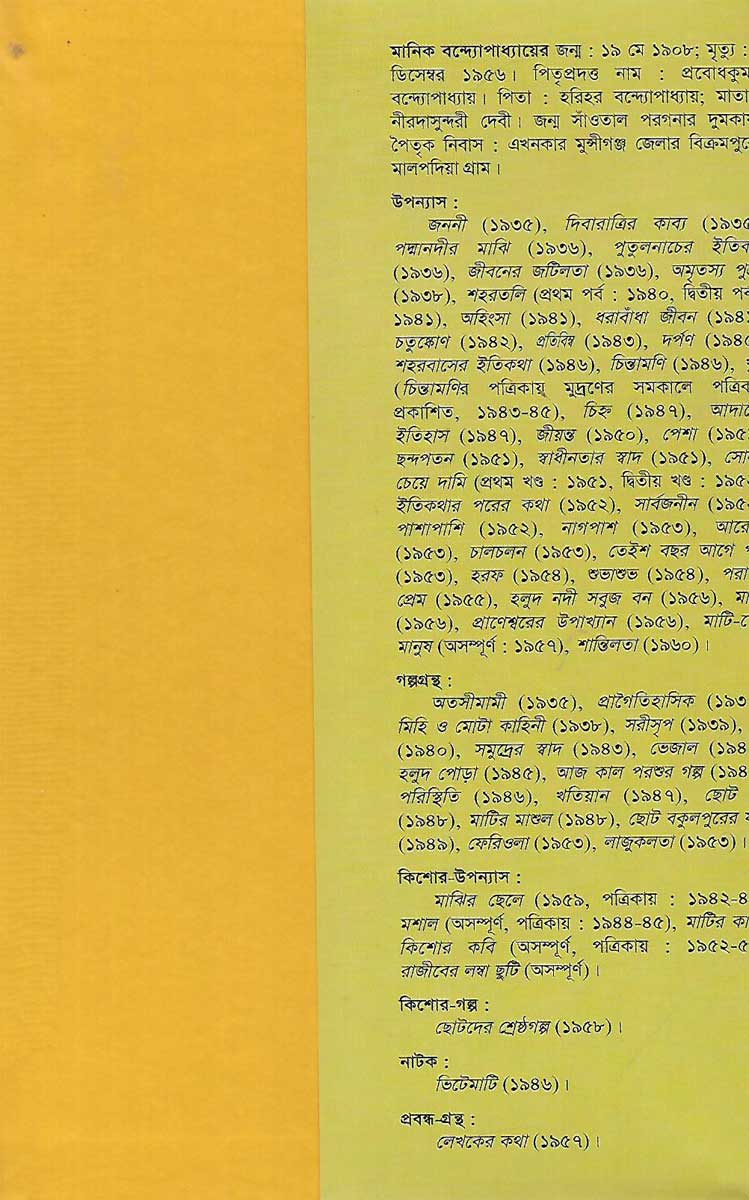 মানিক বন্দ্যোপাধ্যায়ের জন্ম : ১৯ মে ১৯০৮; মৃত্যু :
ডিসেম্বর ১৯৫৬। পিতৃপ্রদত্ত নাম : প্রবোধকুম
বন্দ্যোপাধ্যায়। পিতা : হরিহর বন্দ্যোপাধ্যায়; মাতা
নীরদাসুন্দরী দেবী। জন্ম সাঁওতাল পরগনার দুমকায়
পৈতৃক নিবাস : এখনকার মুন্সীগঞ্জ জেলার বিক্রমপুরে
মালপদিয়া গ্রাম।
উপন্যাস :
জননী (১৯৩৫), দিবারাত্রির কাব্য (১৯৩৫
পদ্মানদীর মাঝি (১৯৩৬), পুতুলনাচের ইতিক
(১৯৩৬), জীবনের জটিলতা (১৯৩৬), অমৃতস্য পু
(১৯৩৮), শহরতলি (প্রথম পর্ব : ১৯৪০, দ্বিতীয় পর্ব
১৯৪১), অহিংসা (১৯৪১), ধরাবাঁধা জীবন (১৯৪১
চতুষ্কোণ (১৯৪২), প্রতিবিম্ব (১৯৪৩), দর্পণ (১৯৪৫
শহরবাসের ইতিকথা (১৯৪৬), চিন্তামণি (১৯৪৬),
(চিন্তামণির পত্রিকায় মুদ্রণের সমকালে পত্রিক
প্রকাশিত, ১৯৪৩-৪৫), চিহ্ন (১৯৪৭), আদায়ে
ইতিহাস (১৯৪৭), জীয়ন্ত (১৯৫০), পেশা (১৯৫
ছন্দপতন (১৯৫১), স্বাধীনতার স্বাদ (১৯৫১), সোন
চেয়ে দামি (প্রথম খণ্ড : ১৯৫১, দ্বিতীয় খণ্ড : ১৯৫২
ইতিকথার পরের কথা (১৯৫২), সার্বজনীন (১৯৫২
পাশাপাশি (১৯৫২), নাগপাশ (১৯৫৩), আরো
(১৯৫৩), চালচলন (১৯৫৩), তেইশ বছর আগে প
(১৯৫৩), হরফ (১৯৫৪), শুভাশুভ (১৯৫৪), পরা
প্রেম (১৯৫৫), হলুদ নদী সবুজ বন (১৯৫৬), মা
(১৯৫৬), প্রাণেশ্বরের উপাখ্যান (১৯৫৬), মাটি-ঘে
মানুষ (অসম্পূর্ণ : ১৯৫৭), শান্তিলতা (১৯৬০)।
গল্পগ্রন্থ :
অতসীমামী (১৯৩৫), প্রাগৈতিহাসিক (১৯৩
মিহি ও মোটা কাহিনী (১৯৩৮), সরীসৃপ (১৯৩৯),
(১৯৪০), সমুদ্রের স্বাদ (১৯৪৩), ভেজাল (১৯৪
হলুদ পোড়া (১৯৪৫), আজ কাল পরশুর গল্প (১৯৪
পরিস্থিতি (১৯৪৬), খতিয়ান (১৯৪৭), ছোট
(১৯৪৮), মাটির মাশুল (১৯৪৮), ছোট বকুলপুরের য
(১৯৪৯), ফেরিওলা (১৯৫৩), লাজুকলতা (১৯৫৩)।
কিশোর-উপন্যাস :
মাঝির ছেলে (১৯৫৯, পত্রিকায় : ১৯৪২-৪
মশাল (অসম্পূর্ণ, পত্রিকায় : ১৯৪৪-৪৫), মাটির কা
কিশোর কবি (অসম্পূর্ণ, পত্রিকায় : ১৯৫২-৫
রাজীবের লম্বা ছুটি (অসম্পূর্ণ)।
কিশোর-গল্প :
ছোটদের শ্রেষ্ঠগল্প (১৯৫৮)।
নাটক :
ভিটেমাটি (১৯৪৬)।
প্রবন্ধ-গ্রন্থ :
লেখকের কথা (১৯৫৭)।